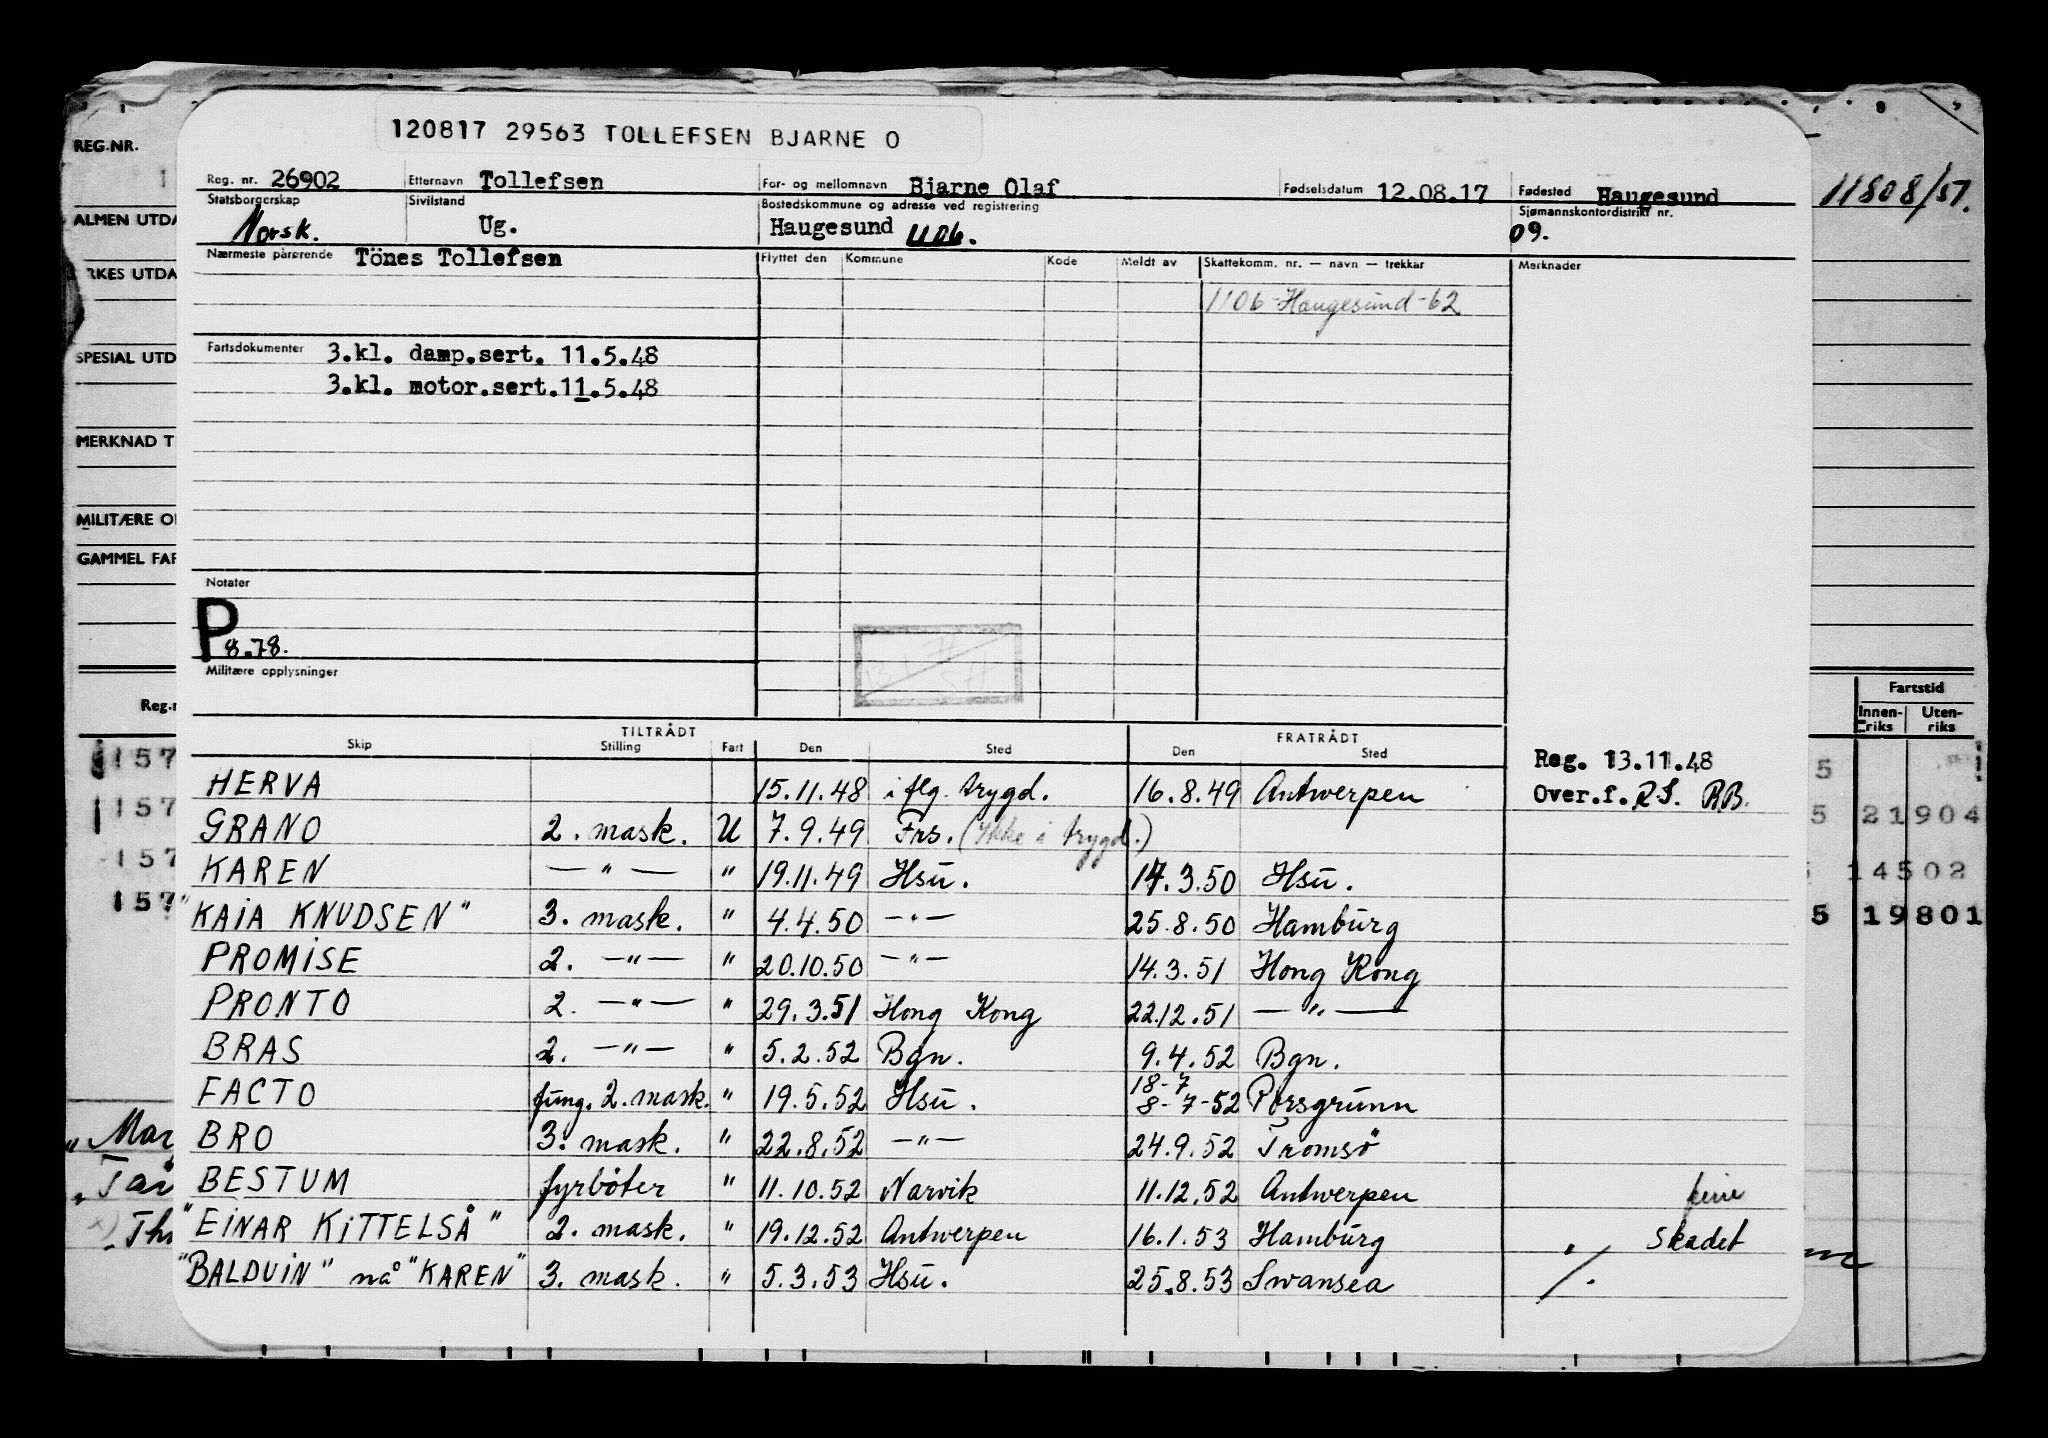 120817 29563 TOLLEFSEN BJARNE O
REG.NR.
Reg. nr. 26902 Etternavn Tollefsen For- og mellomnavn Bjarne Olaf Fødselsdatum 12.08.17 Fødested Haugesund
11808/51.
Statsborgerskap Norsk. Sivilstand Ug. Bostedskommune og adresse ved registrering Haugesund 1106. Sjømannskontordistrikt nr. 09.
ALMEN UTDA
Nærmeste pårørende Tönes Tollefsen Flyttet den Kommune Kode Meldt av Skattekomm. nr. — navn — trekkår Merknader
RKES UTDA
1106-Haugesund-62
Fartsdokumenter 3.kl. damp.sert. 11.5.48
SPESIAL UTD
3.kl. motor.sert.11.5.48
MERKNAD T
MILITÆRE O
GAMMEL FAR
Notater
P 8.78.
Militære opplysninger
Reg.n
Fartstid
Innen-riks Uten-riks
TILTRÅDT FRATRÅDT
Skip Stilling Fart Den Sted Den Sted
Reg. 13.11.48
HERVA 15.11.48 i flg. trygd. 16.8.49 Antwerpen Over.f. R.S. RB.
GRANO 2. mask. U 7.9.49 Frs. (Ikke i trygd.)
KAREN — " — " 19.11.49 Hsu. 17.3.50 Hsu.
"KAIA KNUDSEN" 3. mask. " 4.4.50 — " — 25.8.50 Hamburg
PROMISE 2. — " — " 20.10.50 — " — 14.3.51 Hong Kong
PRONTO 2. — " — " 29.3.51 Hong Kong 22.12.51 — " —
BRAS 2. — " — " 5.2.52 Bgn. 9.4.52 Bgn.
18-7
FACTO fung. 2. mask. " 19.5.52 Hsu. 8-7-52 Porsgrunn
BRO 3. mask. " 22.8.52 — " — 24.9.52 Tromsø
BESTUM fyrbøter " 11.10.52 Narvik 11.12.52 Antwerpen
"EINAR KITTELSÅ" 2. mask. " 19.12.52 Antwerpen 16.1.53 Hamburg Skadet
"BALDUIN" nå "KAREN" 3. mask. " 5.3.53 Hsu. 25.8.53 Swansea
157 5
157 5 21904
157 14502
157 5 19801